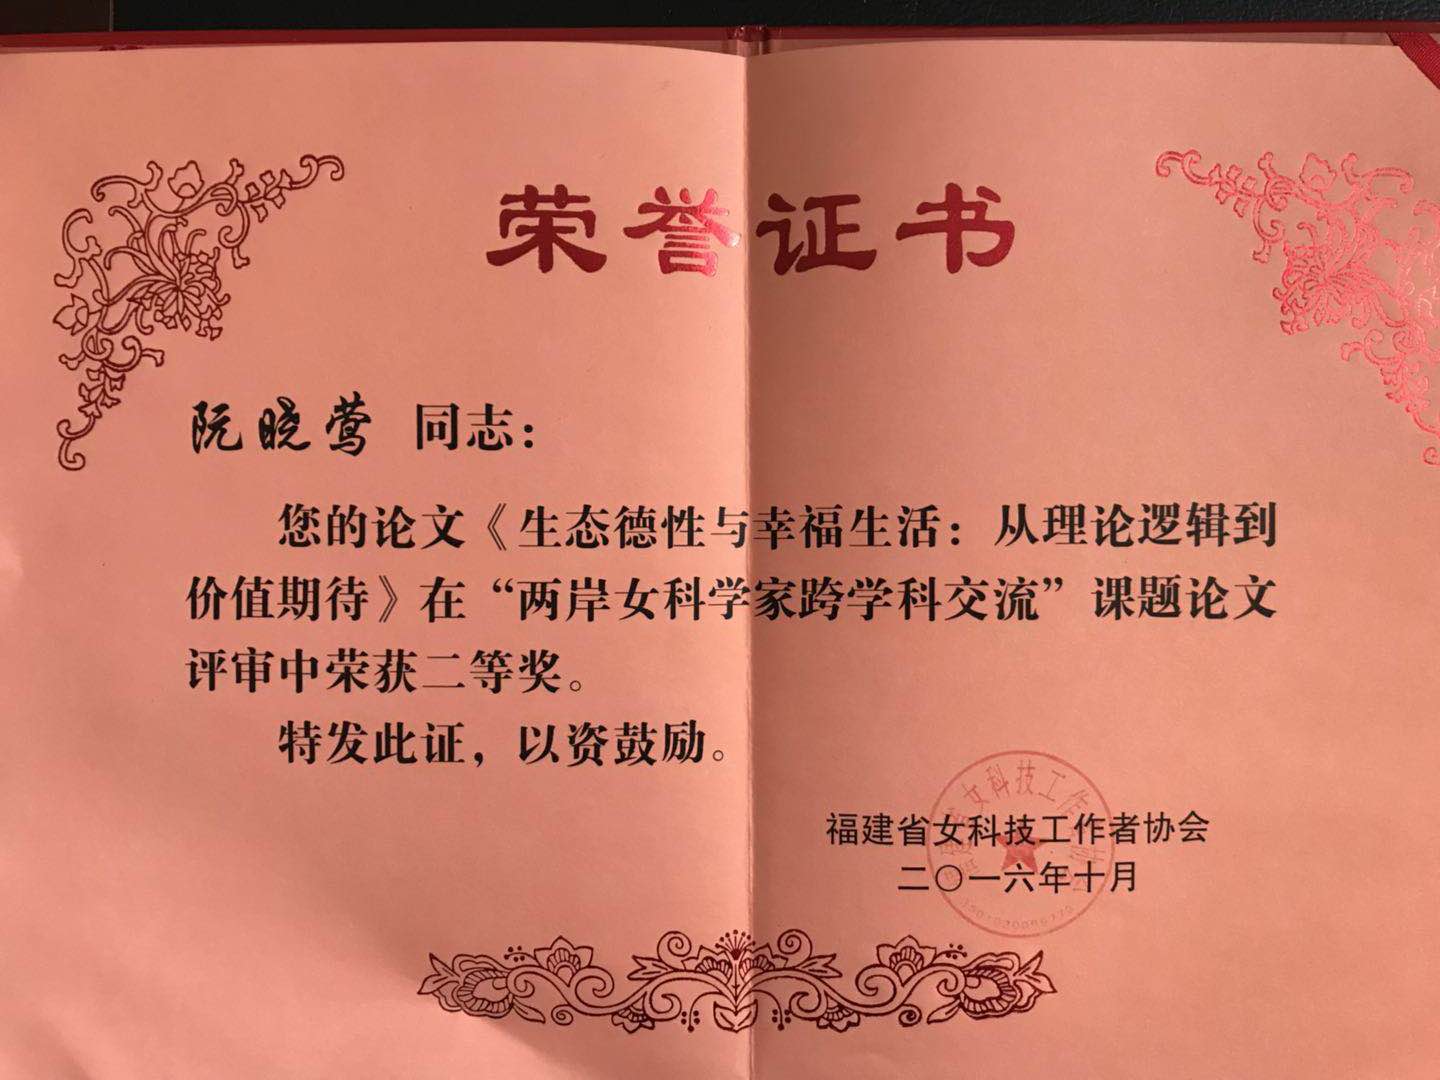 荣誉证书
阮晓莺 同志：
您的论文《生态德性与幸福生活：从理论逻辑到
价值期待》在“两岸女科学家跨学科交流”课题论文
评审中荣获二等奖。
特发此证，以资鼓励。
福建省女科技工作者协会
二〇一六年十月